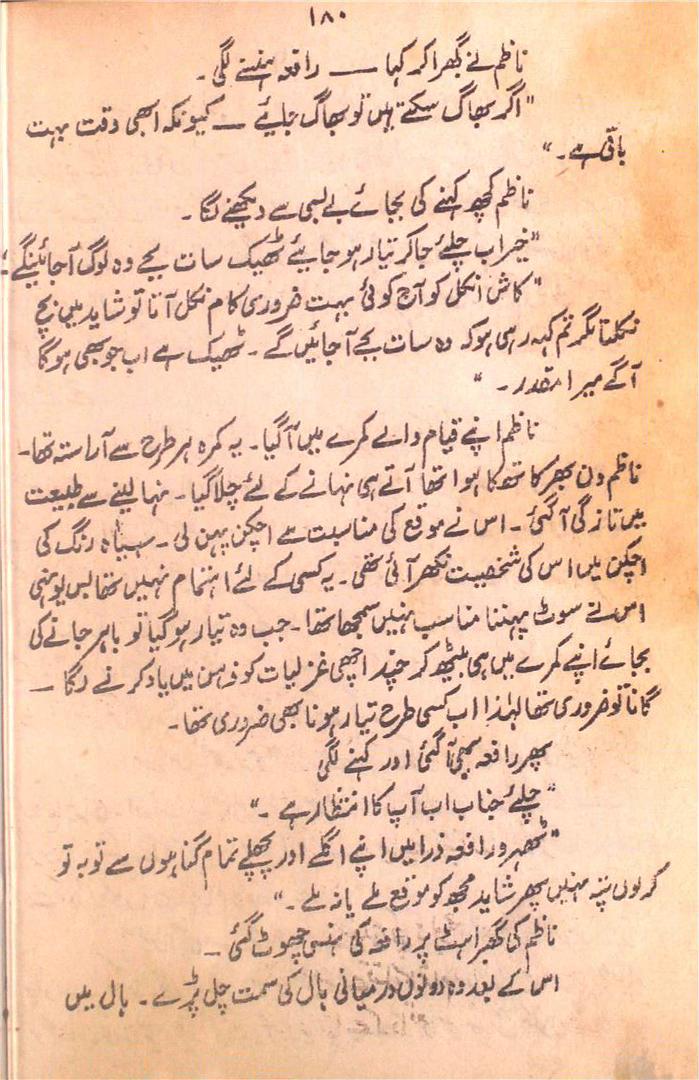 ۱۸۰
ناظم نے گھبرا کر کہا ــــ رافعہ ہنسنے لگی۔
"اگر بھاگ سکتے ہیں تو بھاگ جایئے ــــ کیونکہ ابھی وقت بہت
باقی ہے۔"
ناظم کچھ کہنے کی بجائے بے بسی سے دیکھنے لگا۔
"خیر اب چلئے جا کر تیار ہو جایئے ٹھیک سات بجے وہ لوگ آ جائینگے؛
"کاش انکل کو آج کوئی بہت ضروری کام نکل آتا تو شاید میں بچ
نکلتا مگر تم کہہ رہی ہو کہ وہ سات بجے آ جائیں گے۔ ٹھیک ہے اب جو بھی ہوگا
آگے میرا مقدر۔"
ناظم اپنے قیام والے کمرے میں آ گیا۔ یہ کمرہ ہر طرح سے آراستہ تھا۔
ناظم دن بھر کا تھکا ہوا تھا آتے ہی نہانے کے لئے چلا گیا۔ نہا لینے سے طبیعت
میں تازگی آ گئی۔ اس نے موقع کی مناسبت سے اچکن پہن لی۔ سیاہ رنگ کی
اچکن میں اس کی شخصیت نکھر آئی تھی۔ یہ کسی کے لئے اہتمام نہیں تھا بس یونہی
اس نے سوٹ پہننا مناسب نہیں سمجھا تھا۔ جب وہ تیار ہو گیا تو باہر جانے کی
بجائے اپنے کمرے میں ہی بیٹھ کر چند اچھی غزلیات کو ذہن میں یاد کرنے لگا ــــ
گانا تو ضروری تھا لہٰذا اب کسی طرح تیار ہونا بھی ضروری تھا۔
پھر رافعہ بھی آ گئی اور کہنے لگی
"چلئے جناب اب آپ کا انتظار ہے۔"
"ٹھہرو رافعہ ذرا میں اپنے اگلے اور پچھلے تمام گناہوں سے توبہ تو
کر لوں پتہ نہیں پھر شاید مجھ کو موقع ملے یا نہ ملے۔"
ناظم کی گھبراہٹ پر رافعہ کی ہنسی چھوٹ گئی۔
اس کے بعد وہ دونوں درمیانی ہال کی سمت چل پڑے۔ ہال میں